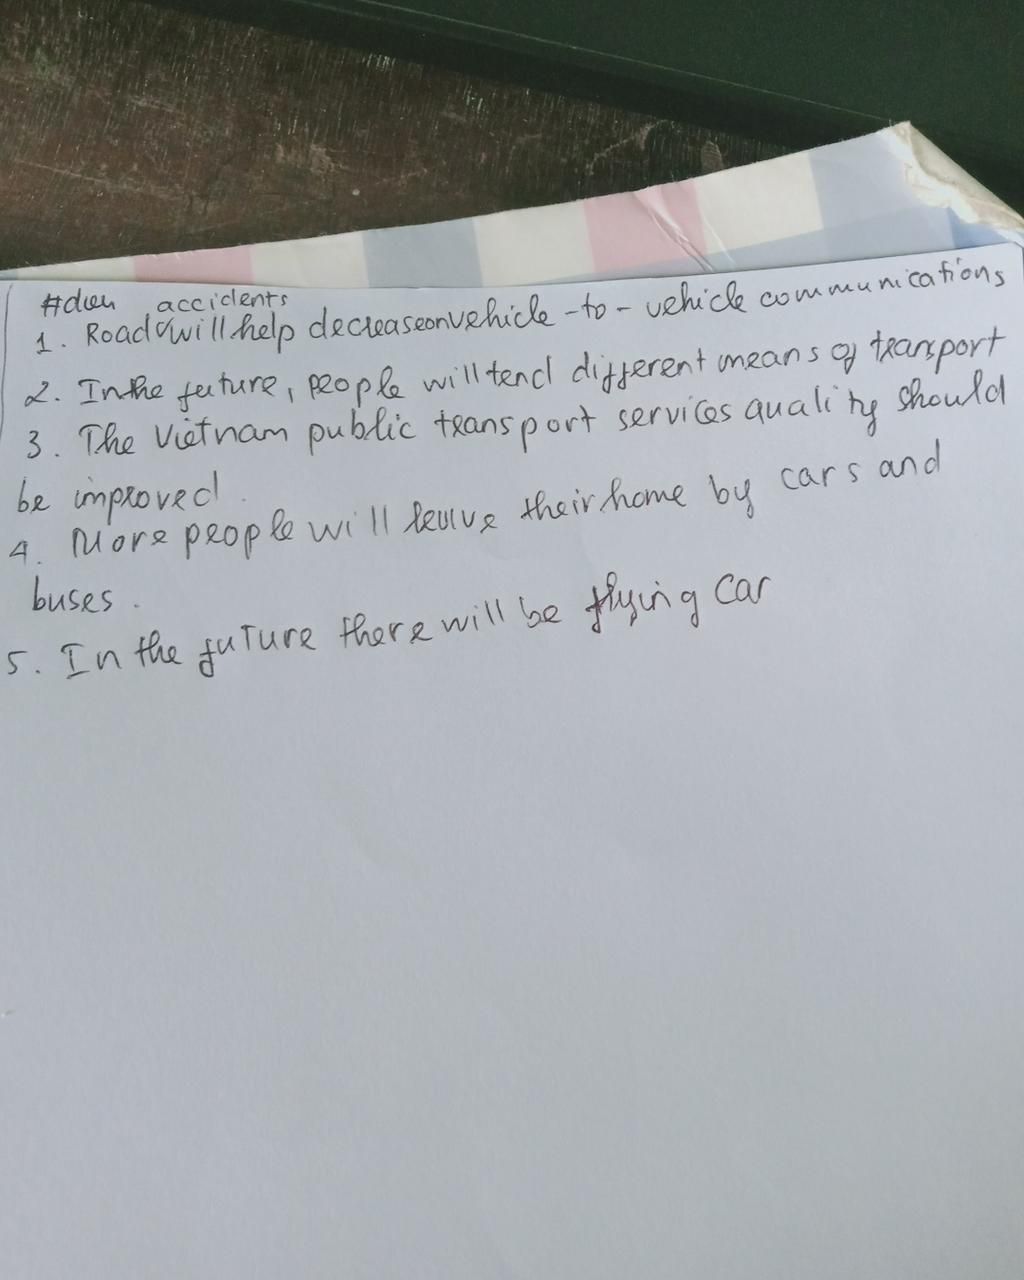 accidents
1. Road will help decrease on vehicle-to-vehicle communications
2. In the future, people will tend different means of transport
3. The Vietnam public transport services quality should
be improved.
4. More people will leave their home by cars and
buses.
5. In the future there will be flying car